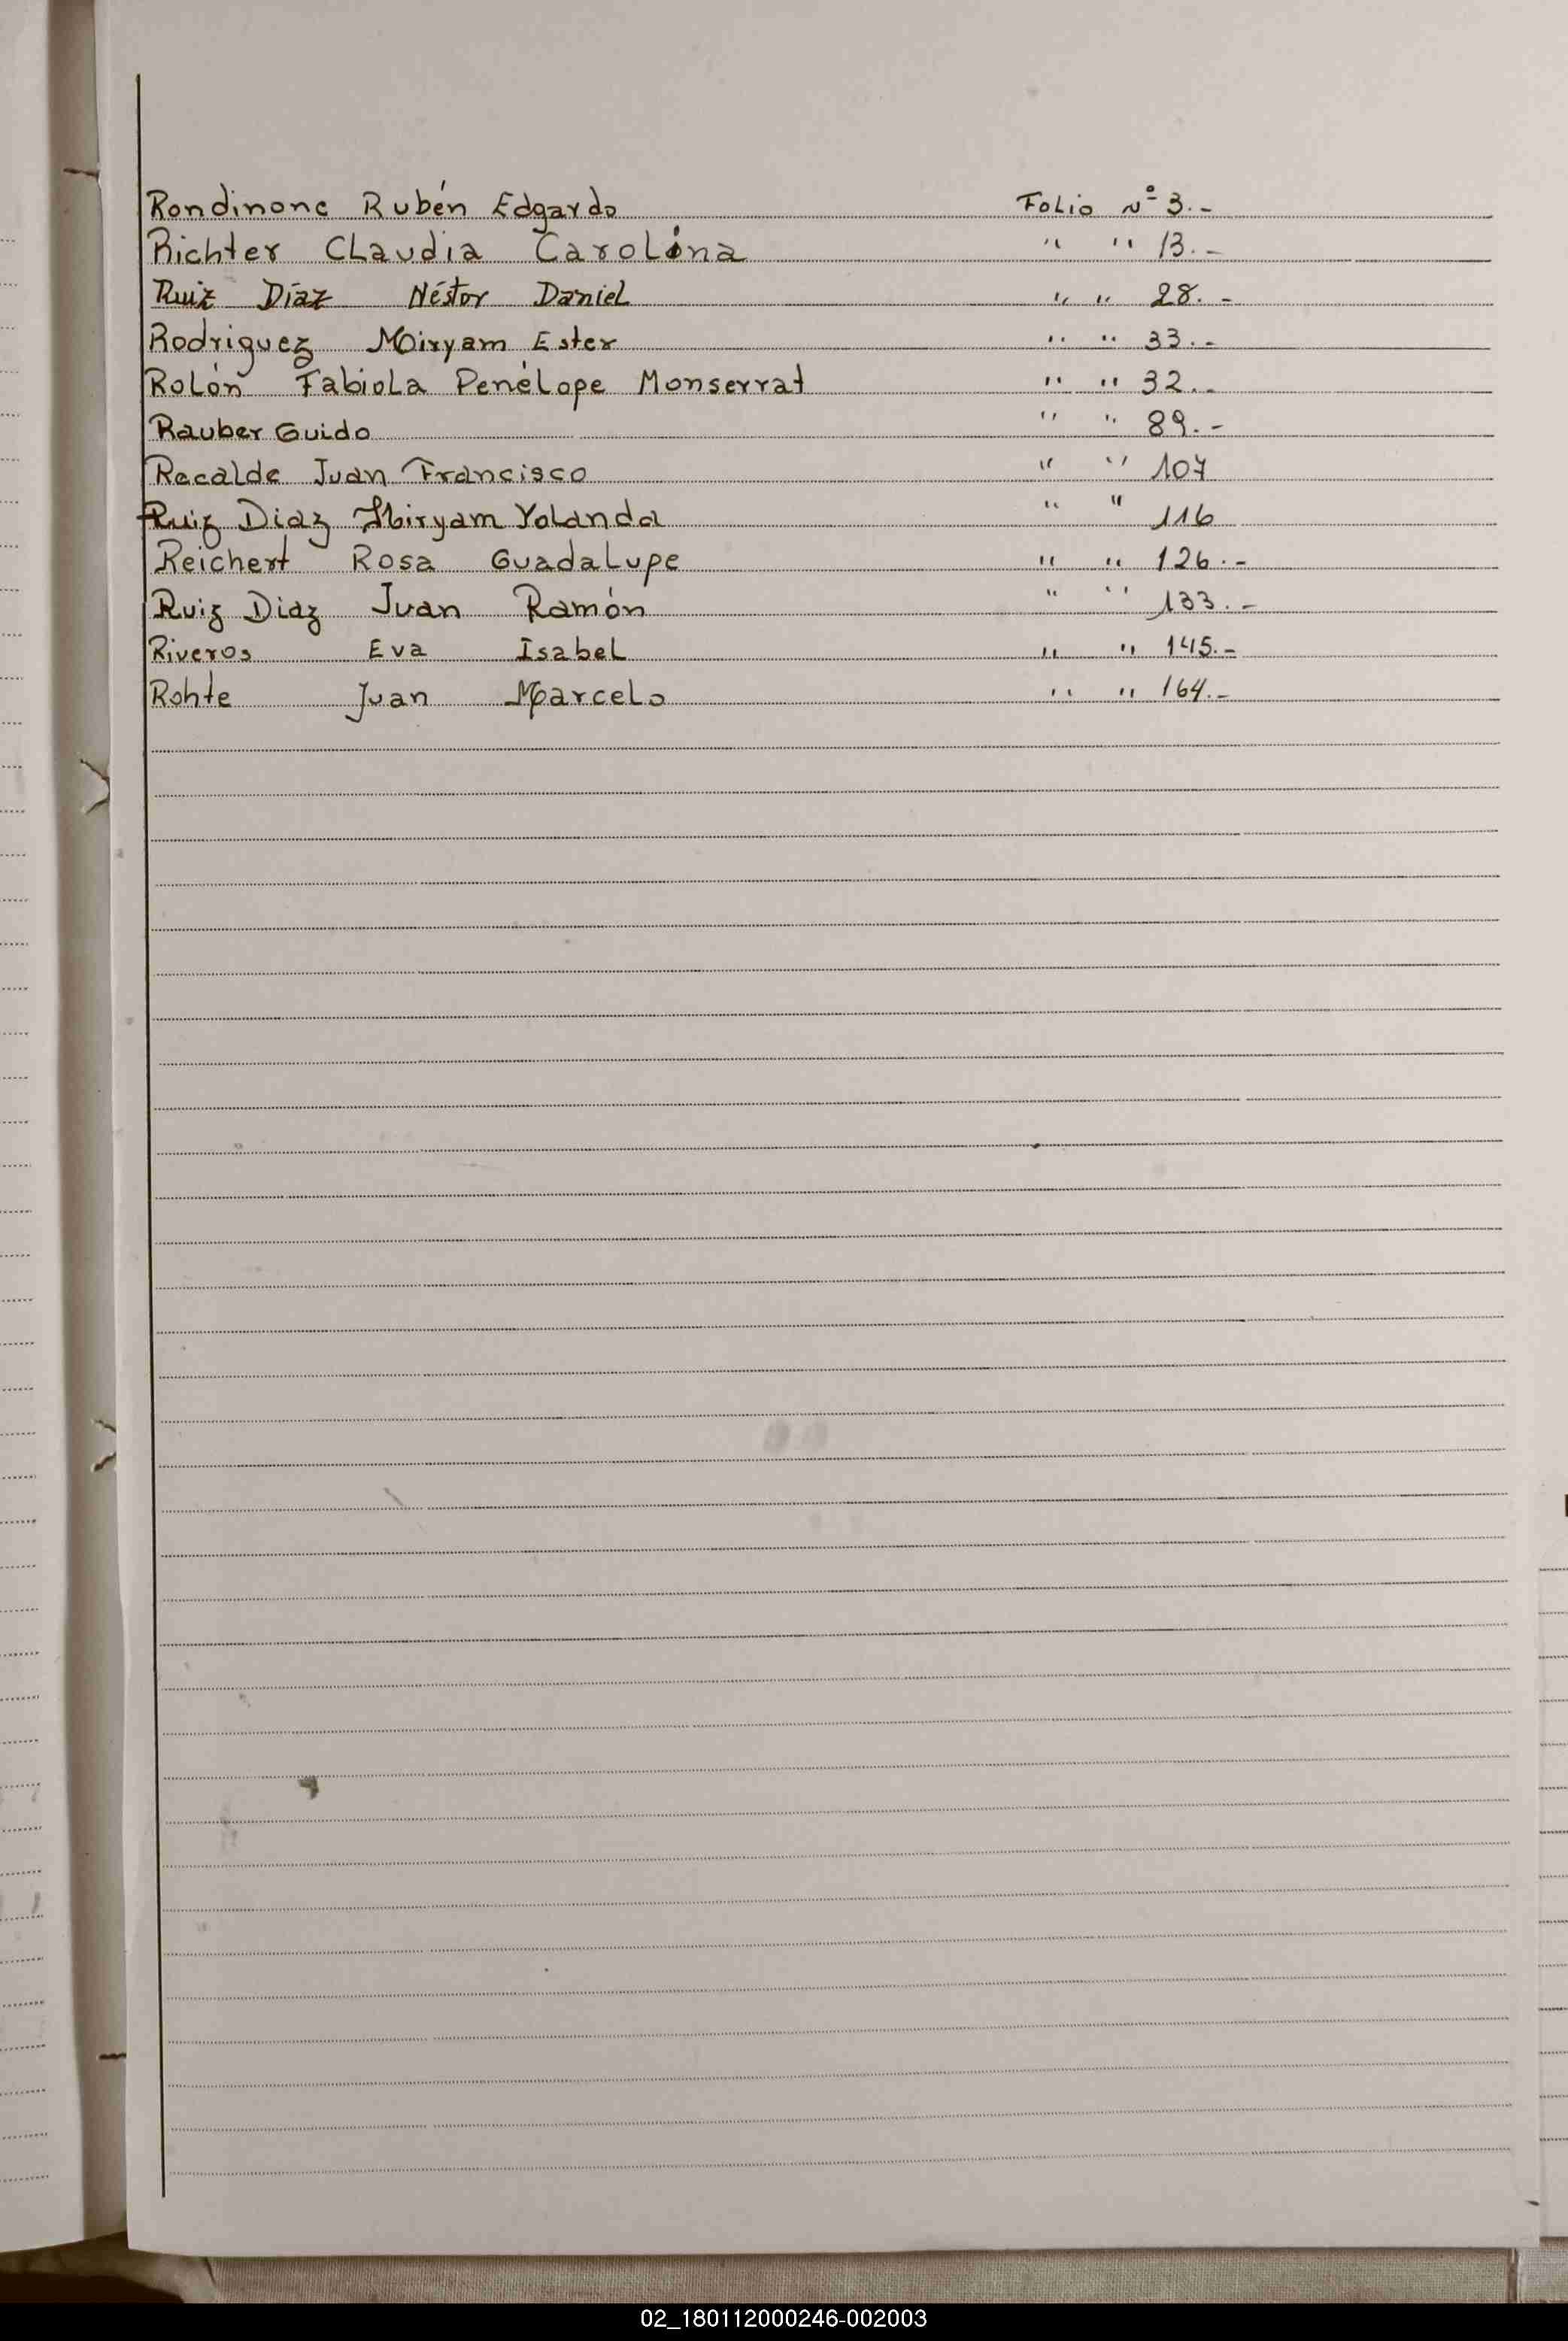 Rondinone Rubén Edgardo Folio Nº 3.-
Richter Claudia Carolina " " 13.-
Ruiz Díaz Néstor Daniel " " 28.-
Rodriguez Miryam Ester " " 33.-
Rolón Fabiola Penélope Monserrat " " 32.-
Rauber Guido " " 89.-
Recalde Juan Francisco " " 107
Ruiz Diaz Miryam Yolanda " " 116
Reichert Rosa Guadalupe " " 126.-
Ruiz Diaz Juan Ramón " " 133.-
Riveros Eva Isabel " " 145.-
Rohte Juan Marcelo " " 164.-
02_180112000246-002003